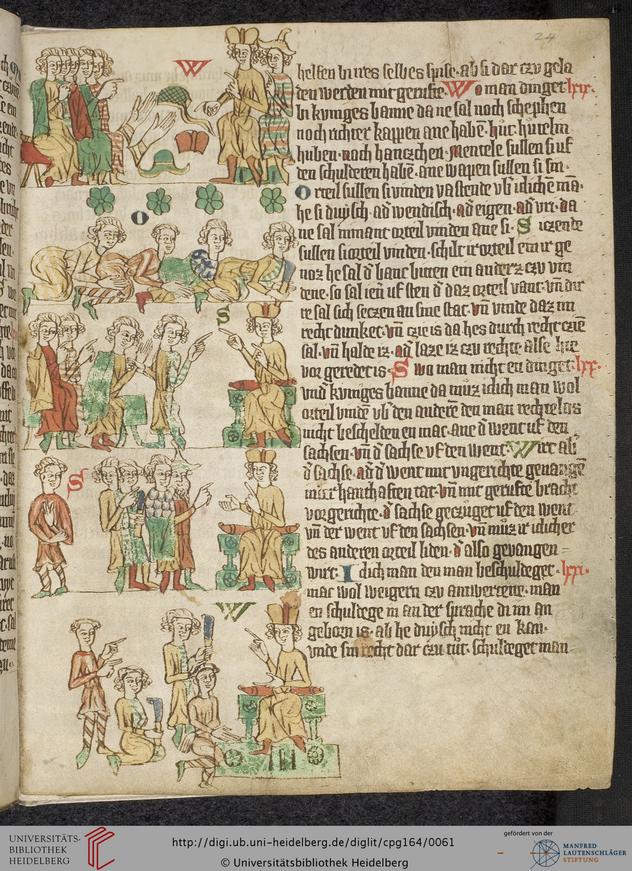 24
W
helfen vn̄ves selbes spise· ab si dar czv gela
den werden mit gerufte· Wo man dinget lxix·
bi kvniges banne da ne sal noch schephen
noch richter kappen ane habē· hut· hutelin
huben· noch hanczchen· Mentele sullen si uf
den schulderen habē· ane wapen sullen si sin·
Orteil sullen si vinden vastende vb̄ idichē mā·
O
he si duczsch· ad̄ wendisch· ad̄ eigen· ad̄ vri· da
ne sal nimant orteil vinden ane si· Siczende
sullen si orteil vinden· schilt ir orteil ein ir ge
noz he sal d̄ banc bitten ein anderz czv vin
dene· so sal ienīr uf sten d̄ daz orteil vant· vn̄ dir
S
re sal sich seczen an sine stat· vn̄ vinde daz im
recht dunket· vn̄ czie is da hes durch recht czīe
sal· vn̄ halde iz· ad̄ laze iz czv rechte· alse hie
vor geredet is· Swo man nicht en dinget· lxx·
vnd̄ kvniges banne da muz idich man wol
orteil vinde vb̄ den anderē den man rechtelos
nicht beschelden en mac· ane d̄ went uf den
sachsen· vn̄ d̄ sachse vf den went· Wirt ab̄
S
d̄ sachse· ad̄ d̄ went mit vngerichte gevangē
in ir hanthaften tat· vn̄ mit gerufte bracht
vor gerichte· d̄ sachse geczuget uf den went
vn̄ der went vf den sachsen· vn̄ muz ir idicher
des anderen orteil liden· d̄ also gevangen
wirt· Idich man den man beschuldeget· lxxi·
mac wol weigern czv antwertene· man
en schuldege in an der sprache di im an
W
geborn is· ab he duczsch nicht en kan·
vnde sin recht dar czu tut· schuldeget man
UNIVERSITÄTS-
BIBLIOTHEK
HEIDELBERG
http://digi.ub.uni-heidelberg.de/diglit/cpg164/0061
© Universitätsbibliothek Heidelberg
gefördert von der
MANFRED
LAUTENSCHLÄGER
STIFTUNG